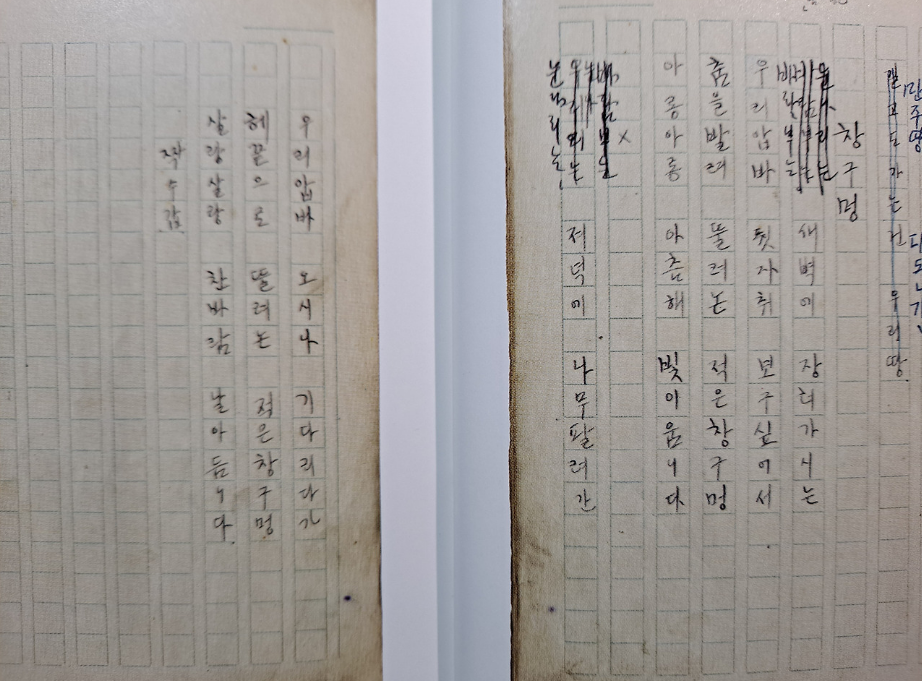 만주땅
우리땅
창구멍
바람부는 새벽에 장터가시는
우리압바 뒷자취 보구싶어서
춤을발려 뚤려논 적은창구멍
아롱아롱 아츰해 빛이움니다
x
눈나리는 저녁에 나무팔려간
우리압바 오시나 기다리다가
헤끝으로 뚤려논 적은창구멍
살랑살랑 찬바람 날아듬니다.